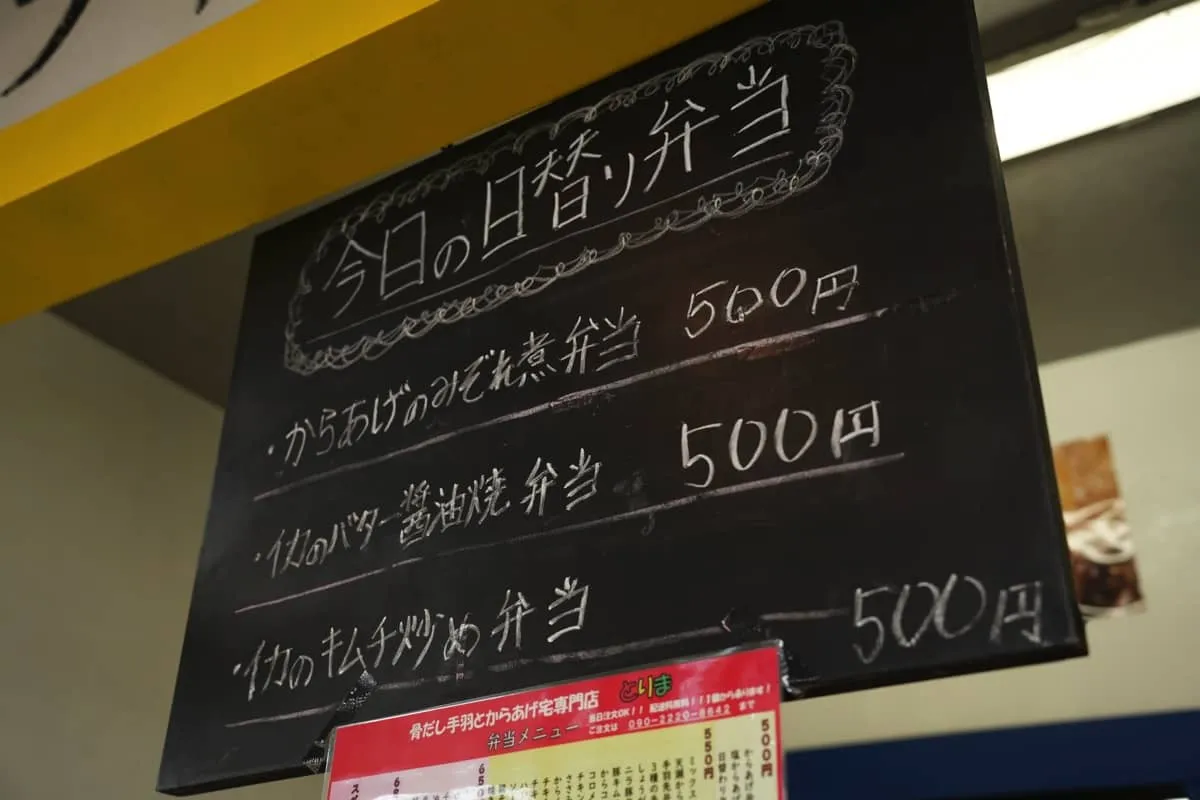 今日の日替り弁当
・からあげのみぞれ煮弁当 500円
・イカのバター醤油焼弁当 500円
・イカのキムチ炒め弁当 500円
骨だし手羽とからあげ宅専門店 とりま
弁当メニュー
当日注文OK!! 配達料無料!!1個からあります!
ご注文は 090-2220-8642 まで
500円
550円